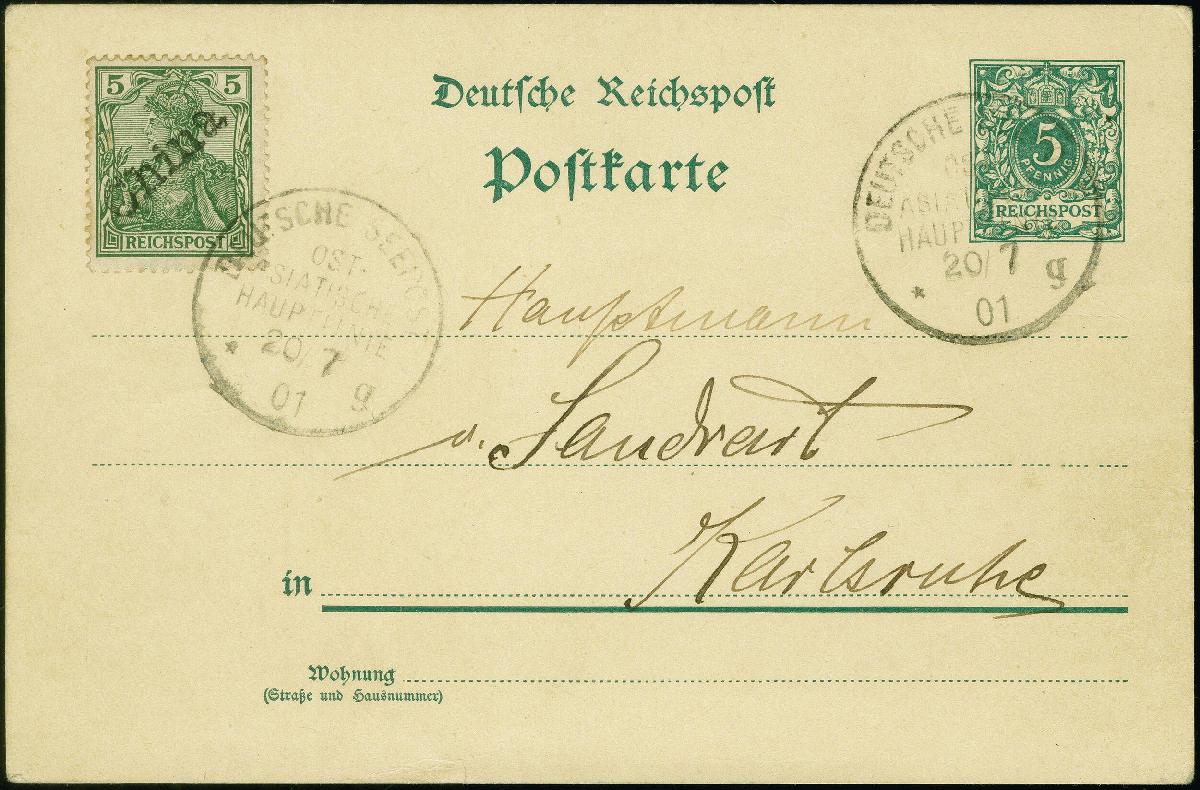 5 5
China
REICHSPOST
Deutsche Reichspost
Postkarte
5
PFENNIG
REICHSPOST
DEUTSCHE SEEPOST
OST-
ASIATISCHE
HAUPTLINIE
20/7
01 g
DEUTSCHE
OST-
ASIATISCHE
HAUPTLINIE
20/7 g
01
Hauptmann
v. Sandrart
in Karlsruhe
Wohnung
(Straße und Hausnummer)